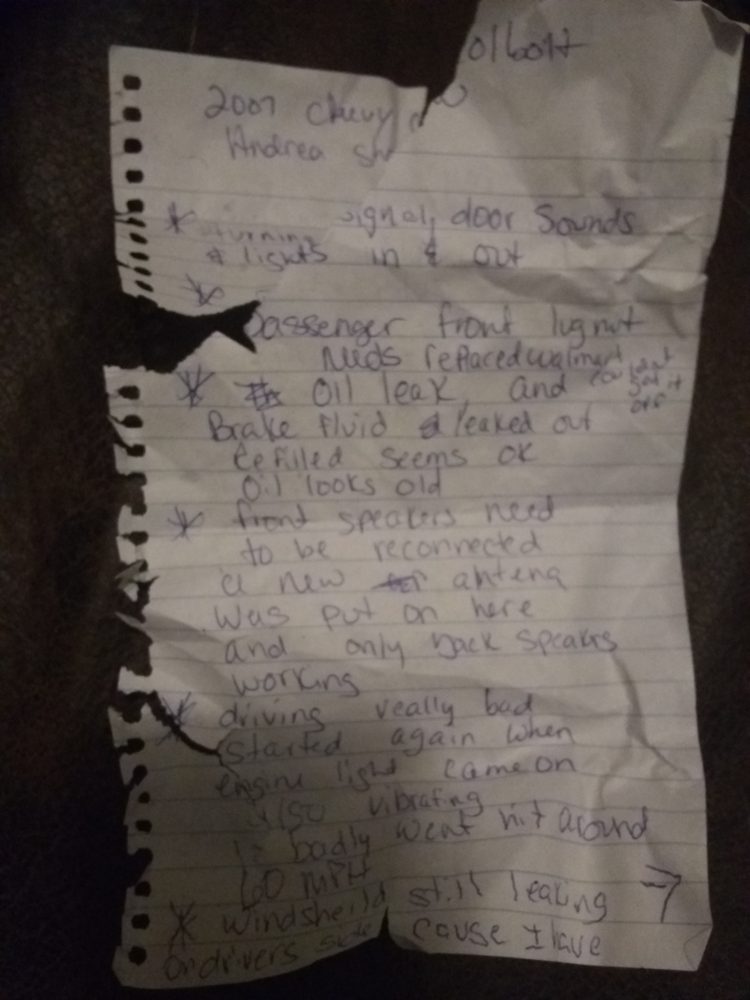 olbott
2007 Chevy
Andrea Sh
* turning signal, door sounds
& lights in & out
* passenger front lugnut
needs replaced walmart
couldnt get it off
* Oil leak, and
Brake fluid leaked out
refilled seems ok
Oil looks old
* front speakers need
to be reconnected
a new antena
was put on here
and only back speakers
working
* driving really bad
started again when
engine light came on
also vibrating
badly went hit around
60 MPH
* windsheild still leaking
on drivers side cause I have